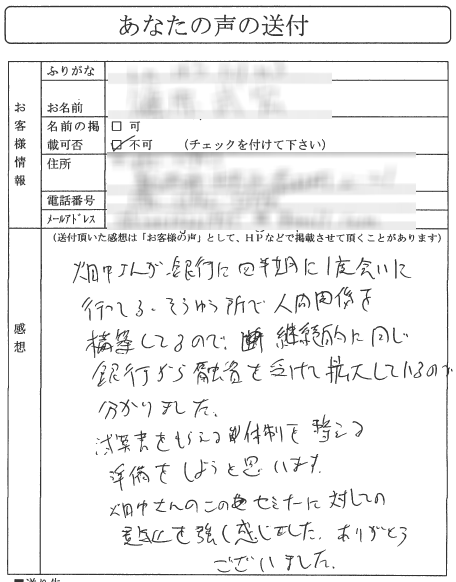 あなたの声の送付
ふりがな
お客様情報
お名前
名前の掲載可否
□ 可
☑ 不可 (チェックを付けて下さい)
住所
電話番号
ﾒｰﾙｱﾄﾞﾚｽ
(送付頂いた感想は「お客様の声」として、HPなどで掲載させて頂くことがあります)
感想
畑中さんが銀行に四半期に1度会いに
行ってる、そうゆう所で人間関係を
構築してるので、継続的に同じ
銀行から融資を受けて拡大しているのが
分かりました。
をもらえる体制を整える
準備をしようと思います。
畑中さんのこのセミナーに対しての
を強く感じました。ありがとう
ございました。